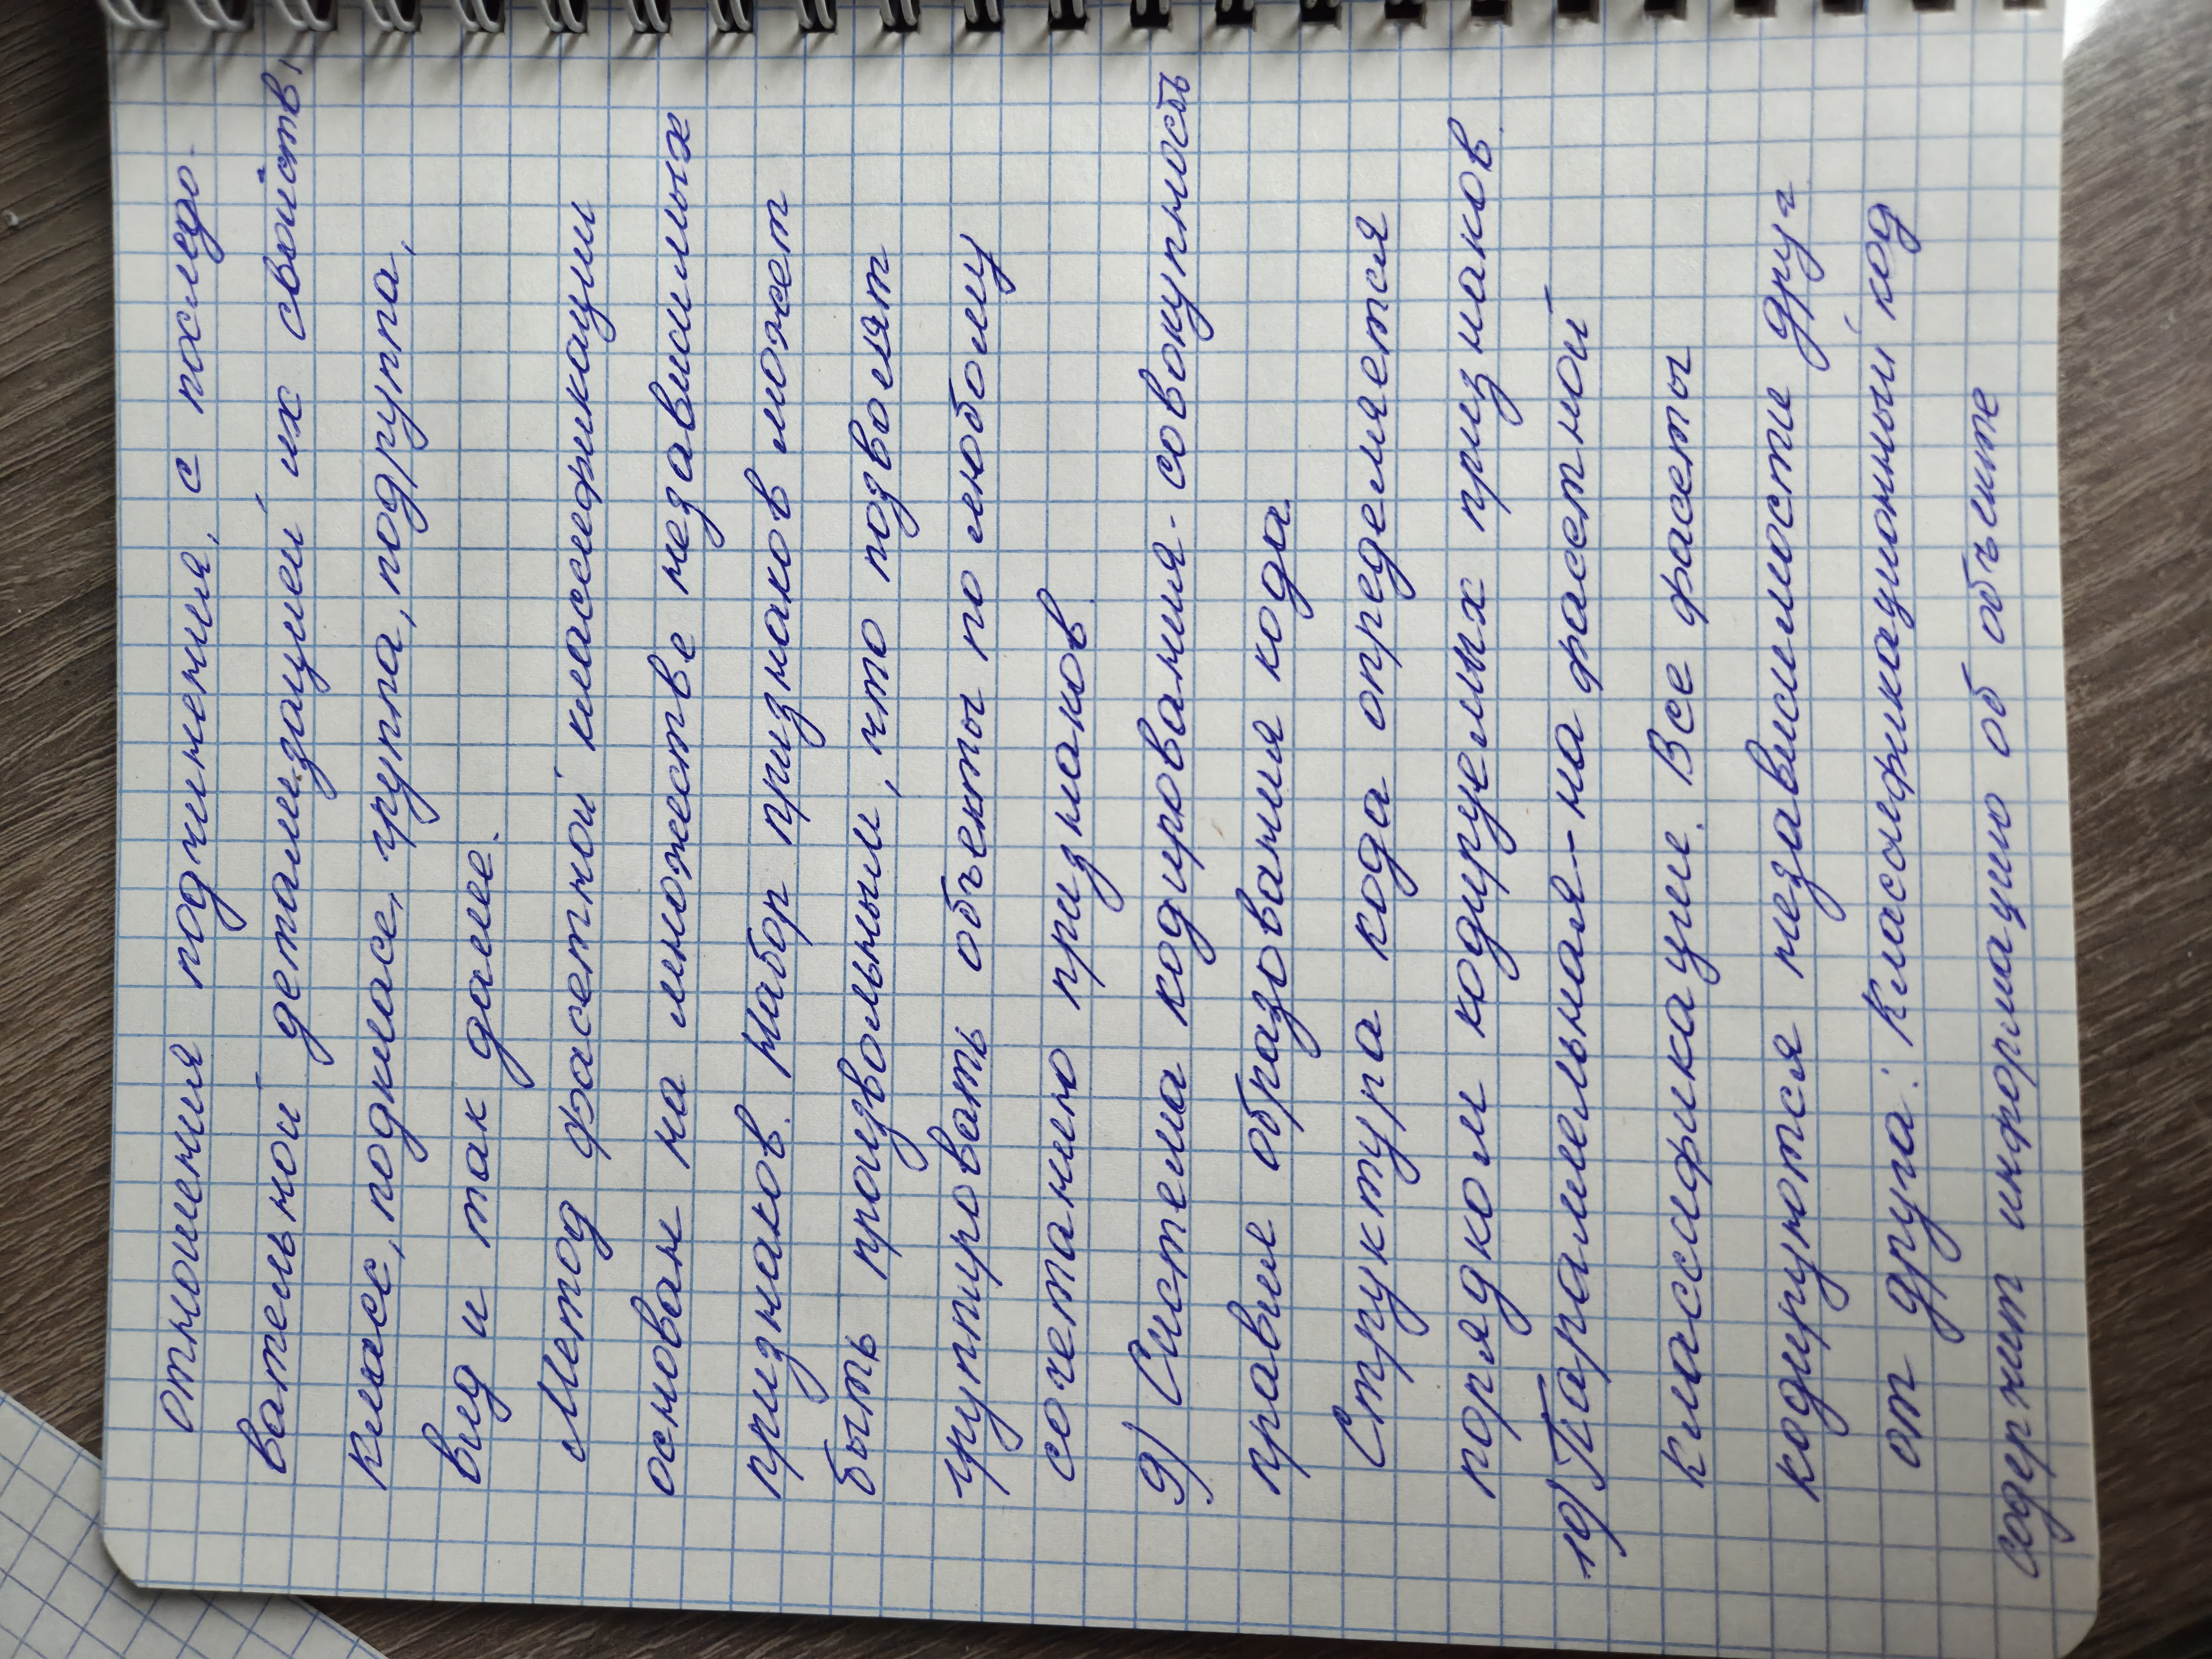 отношения подчинения, с последо-
вательной детализацией их свойств,
класс, подкласс, группа, подгруппа,
вид и так далее.
Метод фасетной классификации
основан на множестве независимых
признаков. Набор признаков может
быть произвольным, что позволят
группировать объекты по любому
сочетанию признаков.
9) Система кодирования - совокупность
правил образования кода.
Структура кода определяется
порядком кодируемых признаков.
10) Параллельная - на фасетной
классификации. Все фасеты
кодируются независимости друг
от друга. Классификационный код
содержит информацию об объекте